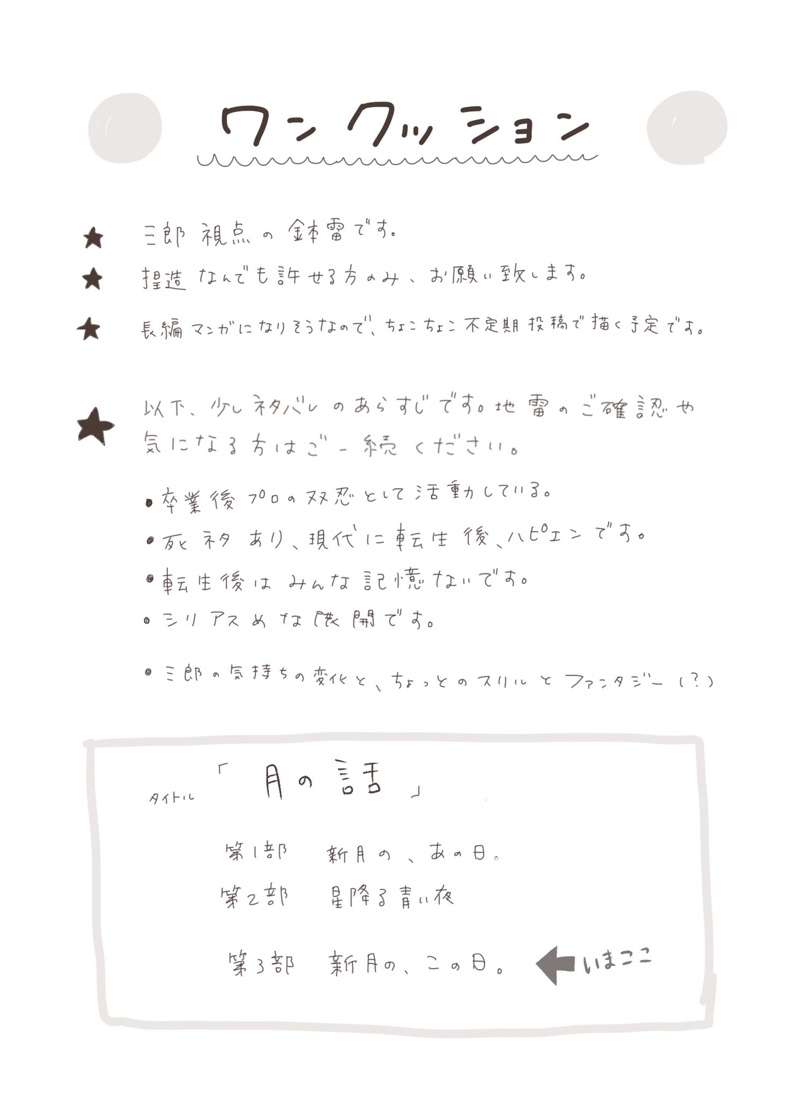 ワンクッション
★ 三郎視点の鉢雷です。
★ 捏造なんでも許せる方のみ、お願い致します。
★ 長編マンガになりそうなので、ちょこちょこ不定期投稿で描く予定です。
★ 以下、少しネタバレのあらすじです。地雷のご確認や
気になる方はご一続ください。
• 卒業後プロの双忍として活動している。
• 死ネタあり、現代に転生後、ハピエンです。
• 転生後はみんな記憶ないです。
• シリアスめな展開です。
• 三郎の気持ちの変化と、ちょっとのスリルとファンタジー(?)
タイトル 「月の話」
第1部 新月の、あの日。
第2部 星降る青い夜
第3部 新月の、この日。 ←いまここ